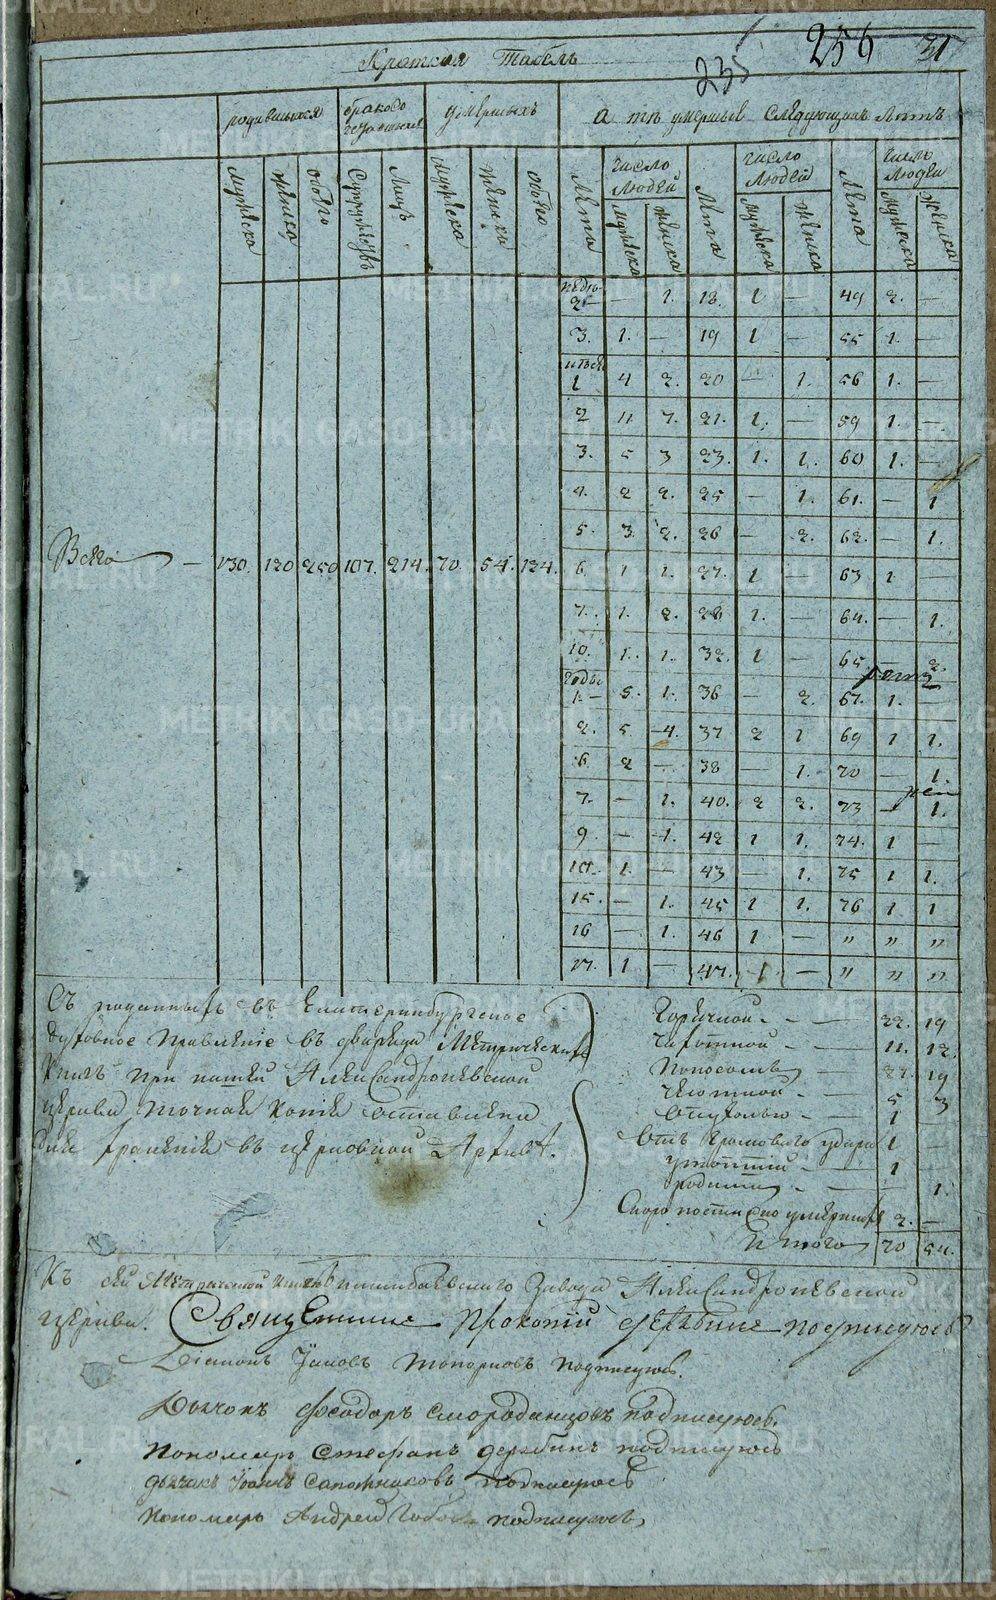 235 256 31
Краткая Табель
родившихся
бракосо
четавшихся
умершихъ
а тѣ умершiе слѣдующихъ лѣтъ
мужеска
женска
обоего
Супружествъ
Лицъ
мужеска
женска
обоего
Лѣта
число людей
мужеска
женска
Лѣта
число людей
мужеска
женска
Лѣта
число людей
мужеска
женска
недѣль
2 — — 1. 18. 1 — 49 2. —
3. 1. — 19 1 — 55 1. —
мѣсяц
1 4 2. 20 — 1. 56 1. —
2 11. 7. 21. 1. — 59 1. —
3. 5 3 23. 1. 1. 60 1. —
4. 2 2. 25 — 1. 61. — 1
5. 3. 2. 26 — 2. 62. — 1.
Всего — 130. 120 250 107. 214. 70. 54. 124.
6. 1 1. 27. 1 — 63 1. —
7. 1. 2. 28 1. — 64. — 1.
10. 1. 1. 32. 1 — 65. — 2.
годы
1 — 5. 1. 36 — 2. 67. 1. —
2. 5. 4. 37 2 1 69 1 1.
6. 2 — 38 — 1. 70 — 1.
7. — 1. 40. 2 2. 73 — 1.
9. — 1. 42 1 1. 74. 1 —
10. 1. — 43 — 1. 75 1 1.
15. — 1. 45 1 1. 76 1 1
16 — 1. 46 1 — " " "
17. 1 — 47. 1 — " " "
Съ поданныхъ въ Екатеринбургское
духовное правленiе въ Метрическихъ
книгъ при нашей Александроневской
церкви точная копiя оставлена
для храненiя въ церковной Архивѣ.
Горячкой. — 22. 19
Чахоткой — 11. 12.
Поносомъ — 27. 19
— 5 3
Опухолью — 1
Отъ Громоваго удара 1 —
— 1
родами — 1.
Скоропостижно умершихъ 2. —
Итого 70 54.
Къ сей Метрической книгѣ Завода Александроневской
церкви. Священникъ Прокопiй подписуюсь
Дiаконъ Топорковъ подписуюсь.
Дьячокъ Феодоръ Смородинцовъ подписуюсь.
Пономарь Стефанъ Дерябинъ подписуюсь
дьячокъ Iоаннъ Сапожниковъ подписуюсь
Пономарь Андрей подписуюсь
METRIKI.GASO-URAL.RU